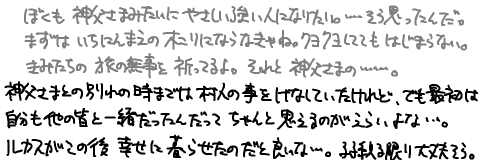 ぼくも 神父さまみたいに やさしい強い人になりたい。…そう思ったんだ。
まずは いちにんまえの 木こりにならなきゃね。クヨクヨしてても はじまらない。
きみたちの 旅の無事を 祈ってるよ。それと 神父さまの……。
神父さまとの別れの時までは村人の事をけなしていたけれど、でも最初は
自分も他の皆と一緒だったんだって ちゃんと思えるのがえらいよな…。
ルカスがこの後 幸せに 暮らせたのだと良いな…。 限り大丈夫そう。